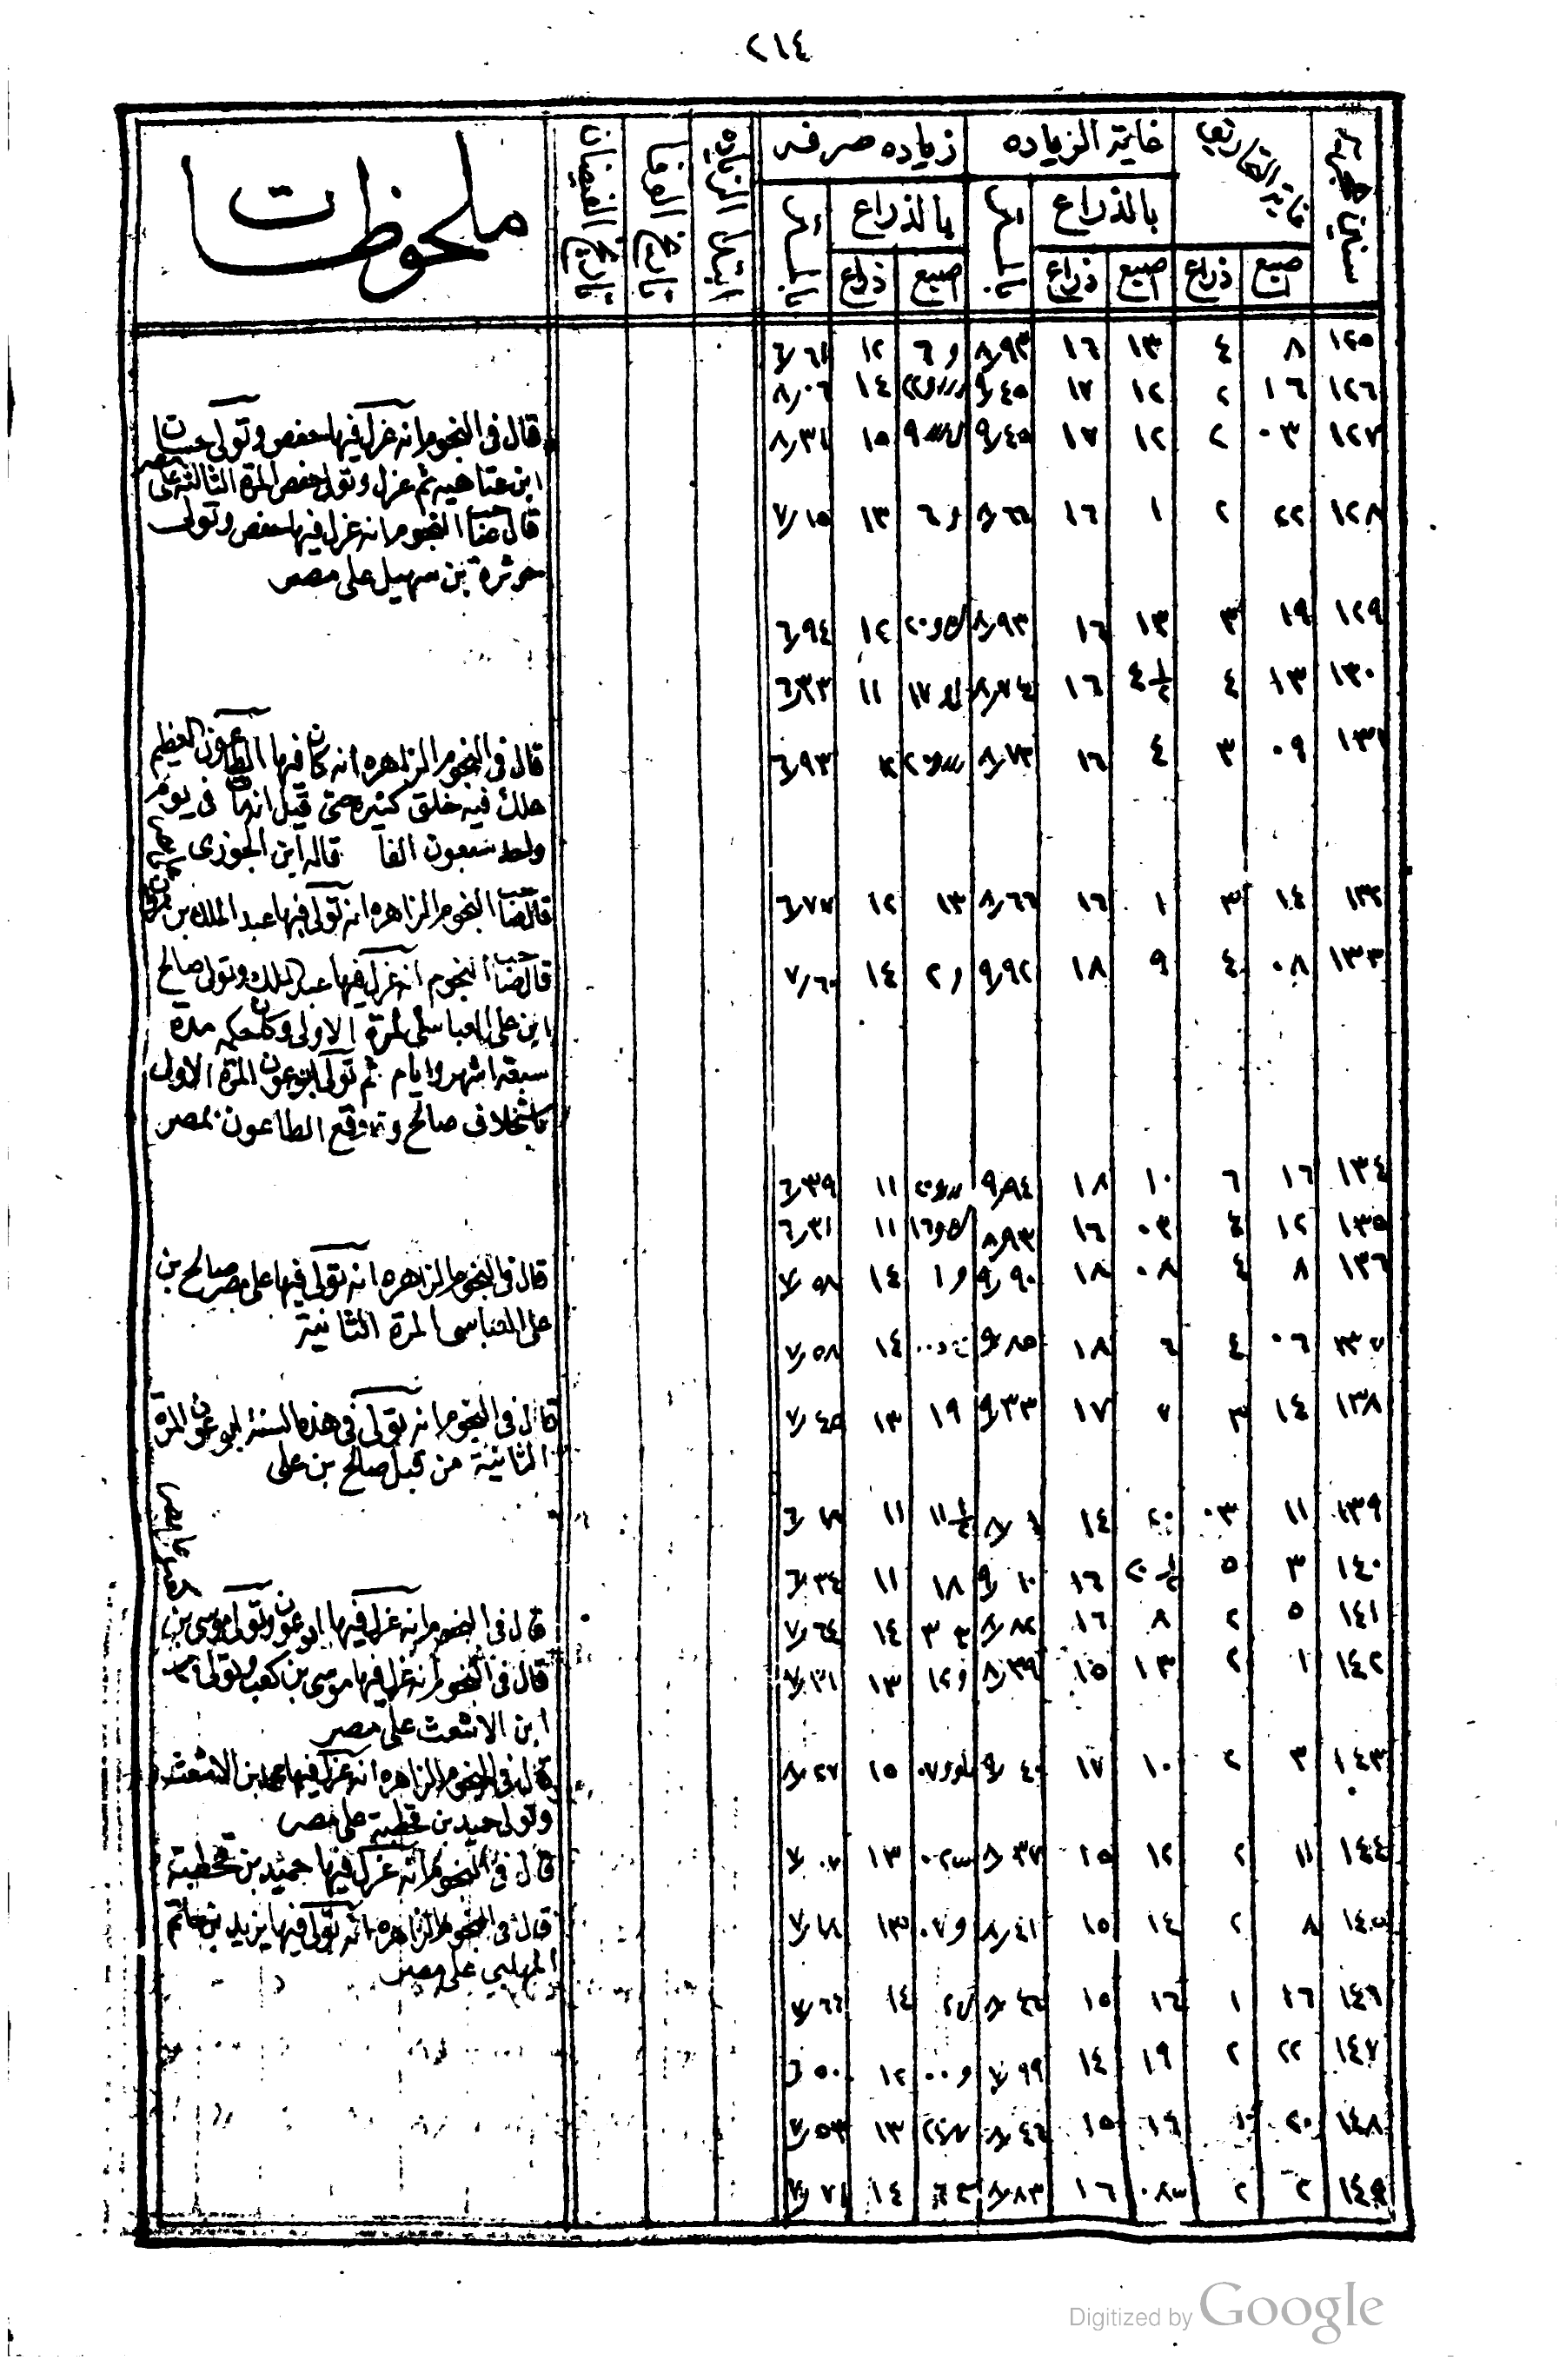 ٢١٤
سنين هجرية
غاية التحاريق
غاية الزياده
زياده صرفه
ابتدا الزيادة
تاريخ الوفا
تاريخ الفيضان
ملحوظات
بالذراع
بالذراع
اصبع ذراع اصبع ذراع اصبع ذراع
١٢٥ ٨ ٤ ١٣ ١٦ ٨٫٩٣ و ٦ ١٢ ٦٫٦١
١٢٦ ١٦ ٢ ١٢ ١٧ ٩٫٤٥ ١٤ ٨٫٠٦
١٢٧ ٠٣ ٢ ١٢ ١٧ ٩٫٤٥ ٩ ١٥ ٨٫٣١
قال فى النجوم انه عزل فيها حفص وتولى حسان
ابن عتاهيه ثم عزل وتولى حفص المرة الثالثه على مصر
١٢٨ ٢٢ ٢ ١ ١٦ ٨٫٦٦ و ٦ ١٣ ٧٫١٥
قال صاحب النجوم انه عزل فيها حفص وتولى
حوثرة بن سهيل على مصر
١٢٩ ١٩ ٣ ١٣ ١٦ ٨٫٩٣ ١٢ ٦٫٩٤
١٣٠ ١٣ ٤ ٤ ١/٢ ١٦ ٨٫٧٤ ١٧ ١١ ٦٫٣٣
١٣١ ٠٩ ٣ ٤ ١٦ ٨٫٧٣ ٦٫٩٣
قال فى النجوم الزاهره انه كان فيها الطاعون العظيم
هلك فيه خلق كثيره حتى قيل انه مات فى يوم
واحد سبعون الفا قاله ابن الجوزى
١٣٢ ١٤ ٣ ١ ١٦ ٨٫٦٦ ١٣ ١٢ ٦٫٧٧
قال صاحب النجوم الزاهره انه تولى فيها عبد الملك بن مروان
١٣٣ ٠٨ ٤ ٩ ١٨ ٩٫٩٢ و ٢ ١٤ ٧٫٦٠
قال صاحب النجوم انه عزل فيها عبد الملك وتولى صالح
ابن على العباسى المرة الاولى وكان حكمه مدة
سبعة اشهر وايام ثم تولى ابو عون المرة الاولى
باستخلاف صالح وقع الطاعون بمصر
١٣٤ ١٦ ٦ ١٠ ١٨ ٩٫٩٤ ١١ ٦٫٣٩
١٣٥ ١٢ ٤ ٠٣ ١٦ ٨٫٩٣ ١٦ ١١ ٦٫٣١
١٣٦ ٨ ٤ ٠٨ ١٨ ٩٫٩٠ و ١ ١٤ ٧٫٥٨
قال فى النجوم الزاهره انه تولى فيها على مصر صالح بن
على العباسى المرة الثانية
١٣٧ ٠٦ ٤ ٦ ١٨ ٩٫٨٥ ١٤ ٧٫٥٨
١٣٨ ١٤ ٣ ٧ ١٧ ٩٫٣٣ ١٩ ١٣ ٧٫٤٥
قال فى النجوم انه تولى فى هذه السنة ابو عون المرة
الثانية من قبل صالح بن على
١٣٩ ١١ ٠٣ ٢٠ ١٤ ١١ ١١
١٤٠ ٣ ٥ ٢٠ ١/٢ ١٦ ٩٫١٠ ١٨ ١١ ٦٫٣٤
١٤١ ٥ ٢ ٨ ١٦ ٨٫٨٢ ٣ ١٤ ٧٫٦٤
قال فى النجوم انه عزل فيها ابو عون وتولى موسى بن
كعب على مصر
١٤٢ ١ ٢ ١٣ ١٥ ٨٫٣٩ و ١٢ ١٣ ٧٫٣١
قال فى النجوم انه عزل فيها موسى بن كعب وتولى محمد
ابن الاشعث على مصر
١٤٣ ٣ ٢ ١٠ ١٧ ٩٫٤٠ ٠٧ ١٥ ٨٫٢٧
قال فى النجوم الزاهره انه عزل فيها محمد بن الاشعث
وتولى حميد بن قحطبة على مصر
١٤٤ ١١ ٢ ١٢ ١٥ ٨٫٣٧ ١٣ ٧٫٠٧
قال فى النجوم انه عزل فيها حميد بن قحطبة
١٤٥ ٨ ٢ ١٤ ١٥ ٨٫٤١ و ٠٧ ١٣ ٧٫١٨
قال فى النجوم الزاهره انه تولى فيها يزيد بن حاتم
المهلبي على مصر
١٤٦ ١٦ ١ ١٦ ١٥ ٨٫٤٦ ١٤ ٧٫٦٦
١٤٧ ٢٢ ٢ ١٩ ١٤ ٧٫٩٩ و ٠٠ ١٢ ٦٫٥٠
١٤٨ ٢٠ ١ ١٦ ١٥ ٨٫٤٦ ١٣ ٧٫٥٣
١٤٩ ٢ ٢ ٠٨ ١٦ ٨٫٨٣ ١٤ ٧٫٧١
Digitized by Google